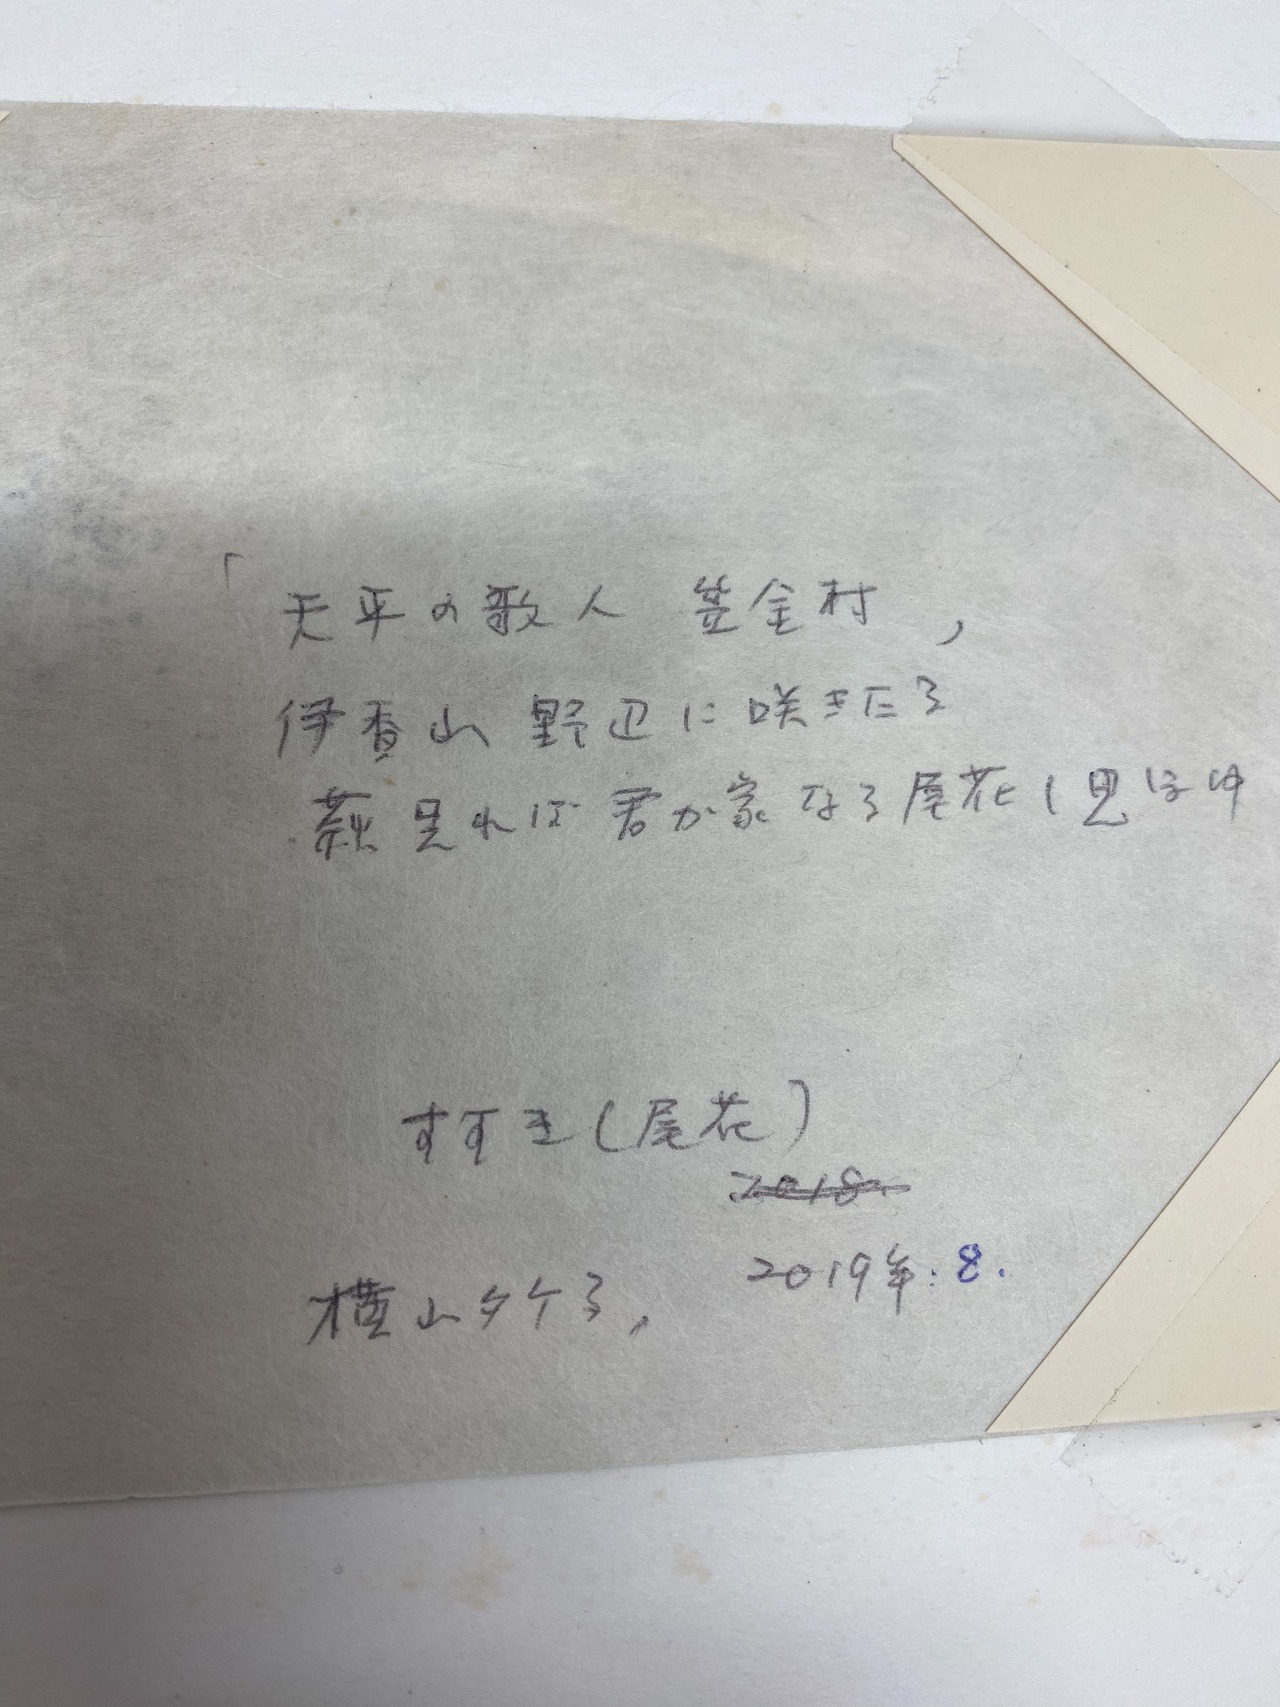 「天平の歌人 笠金村,
伊香山 野辺に咲きたる
萩見れば君が家なる尾花し思ほゆ
すすき(尾花)
2018.
2019年.8.
横山タケる,